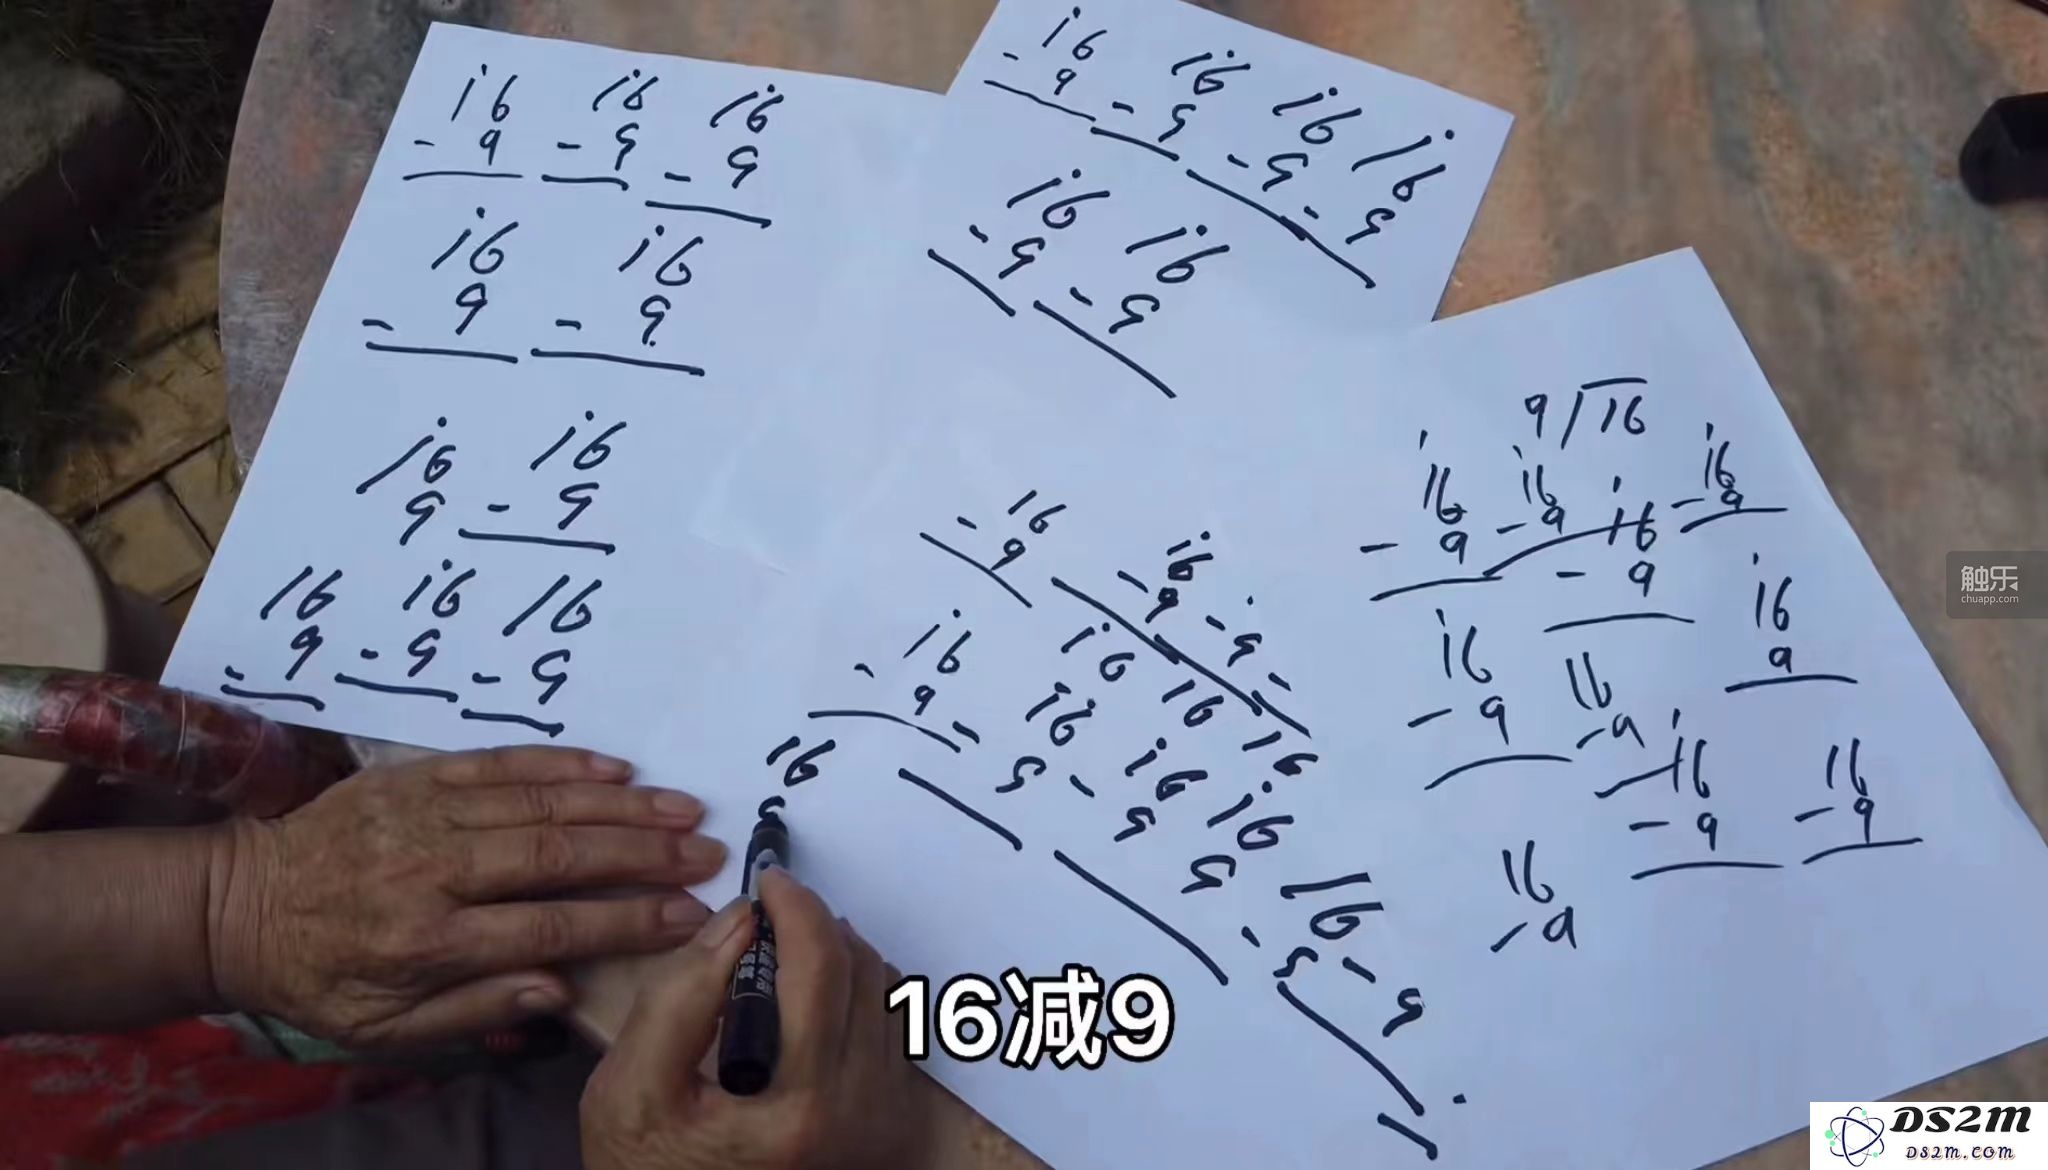 16 16 16
- 9 - 9 - 9
16 16
- 9 - 9
16 16
9 - 9
16 16 16
- 9 - 9 - 9
16 16 16 16
- 9 - 9 - 9 - 9
16 16
- 9 - 9
16 16
- 9 - 9 - 9 -
16 16 16 16
- 9
16 16 16
- 9 - 9 9
16 - 9
- 9
16
9
9/16
16 16 16 16
- 9 - 9 - 9 - 9
16
9
16 16
- 9 - 9
16 16
- 9 - 9
16
- 9
16减9
触乐
chuapp.com
DS2M
DS2M.com